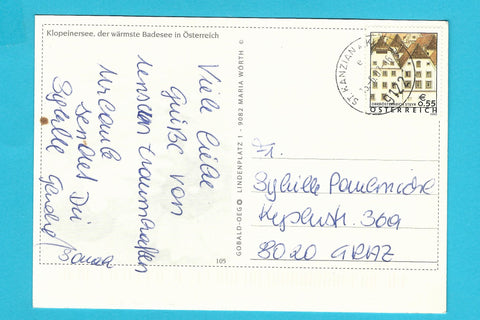 Klopeinersee, der wärmste Badesee in Österreich
Viele liebe
Grüße von
unserem traumhaften
Urlaub
sendet Dir
Sybille
GOBALD-OEG LINDENPLATZ 1 - 9082 MARIA WÖRTH ©
105
ST. KANZIAN
9122
€ 0,55
ÖSTERREICH
Fr.
Sybille
36a
8020 GRAZ